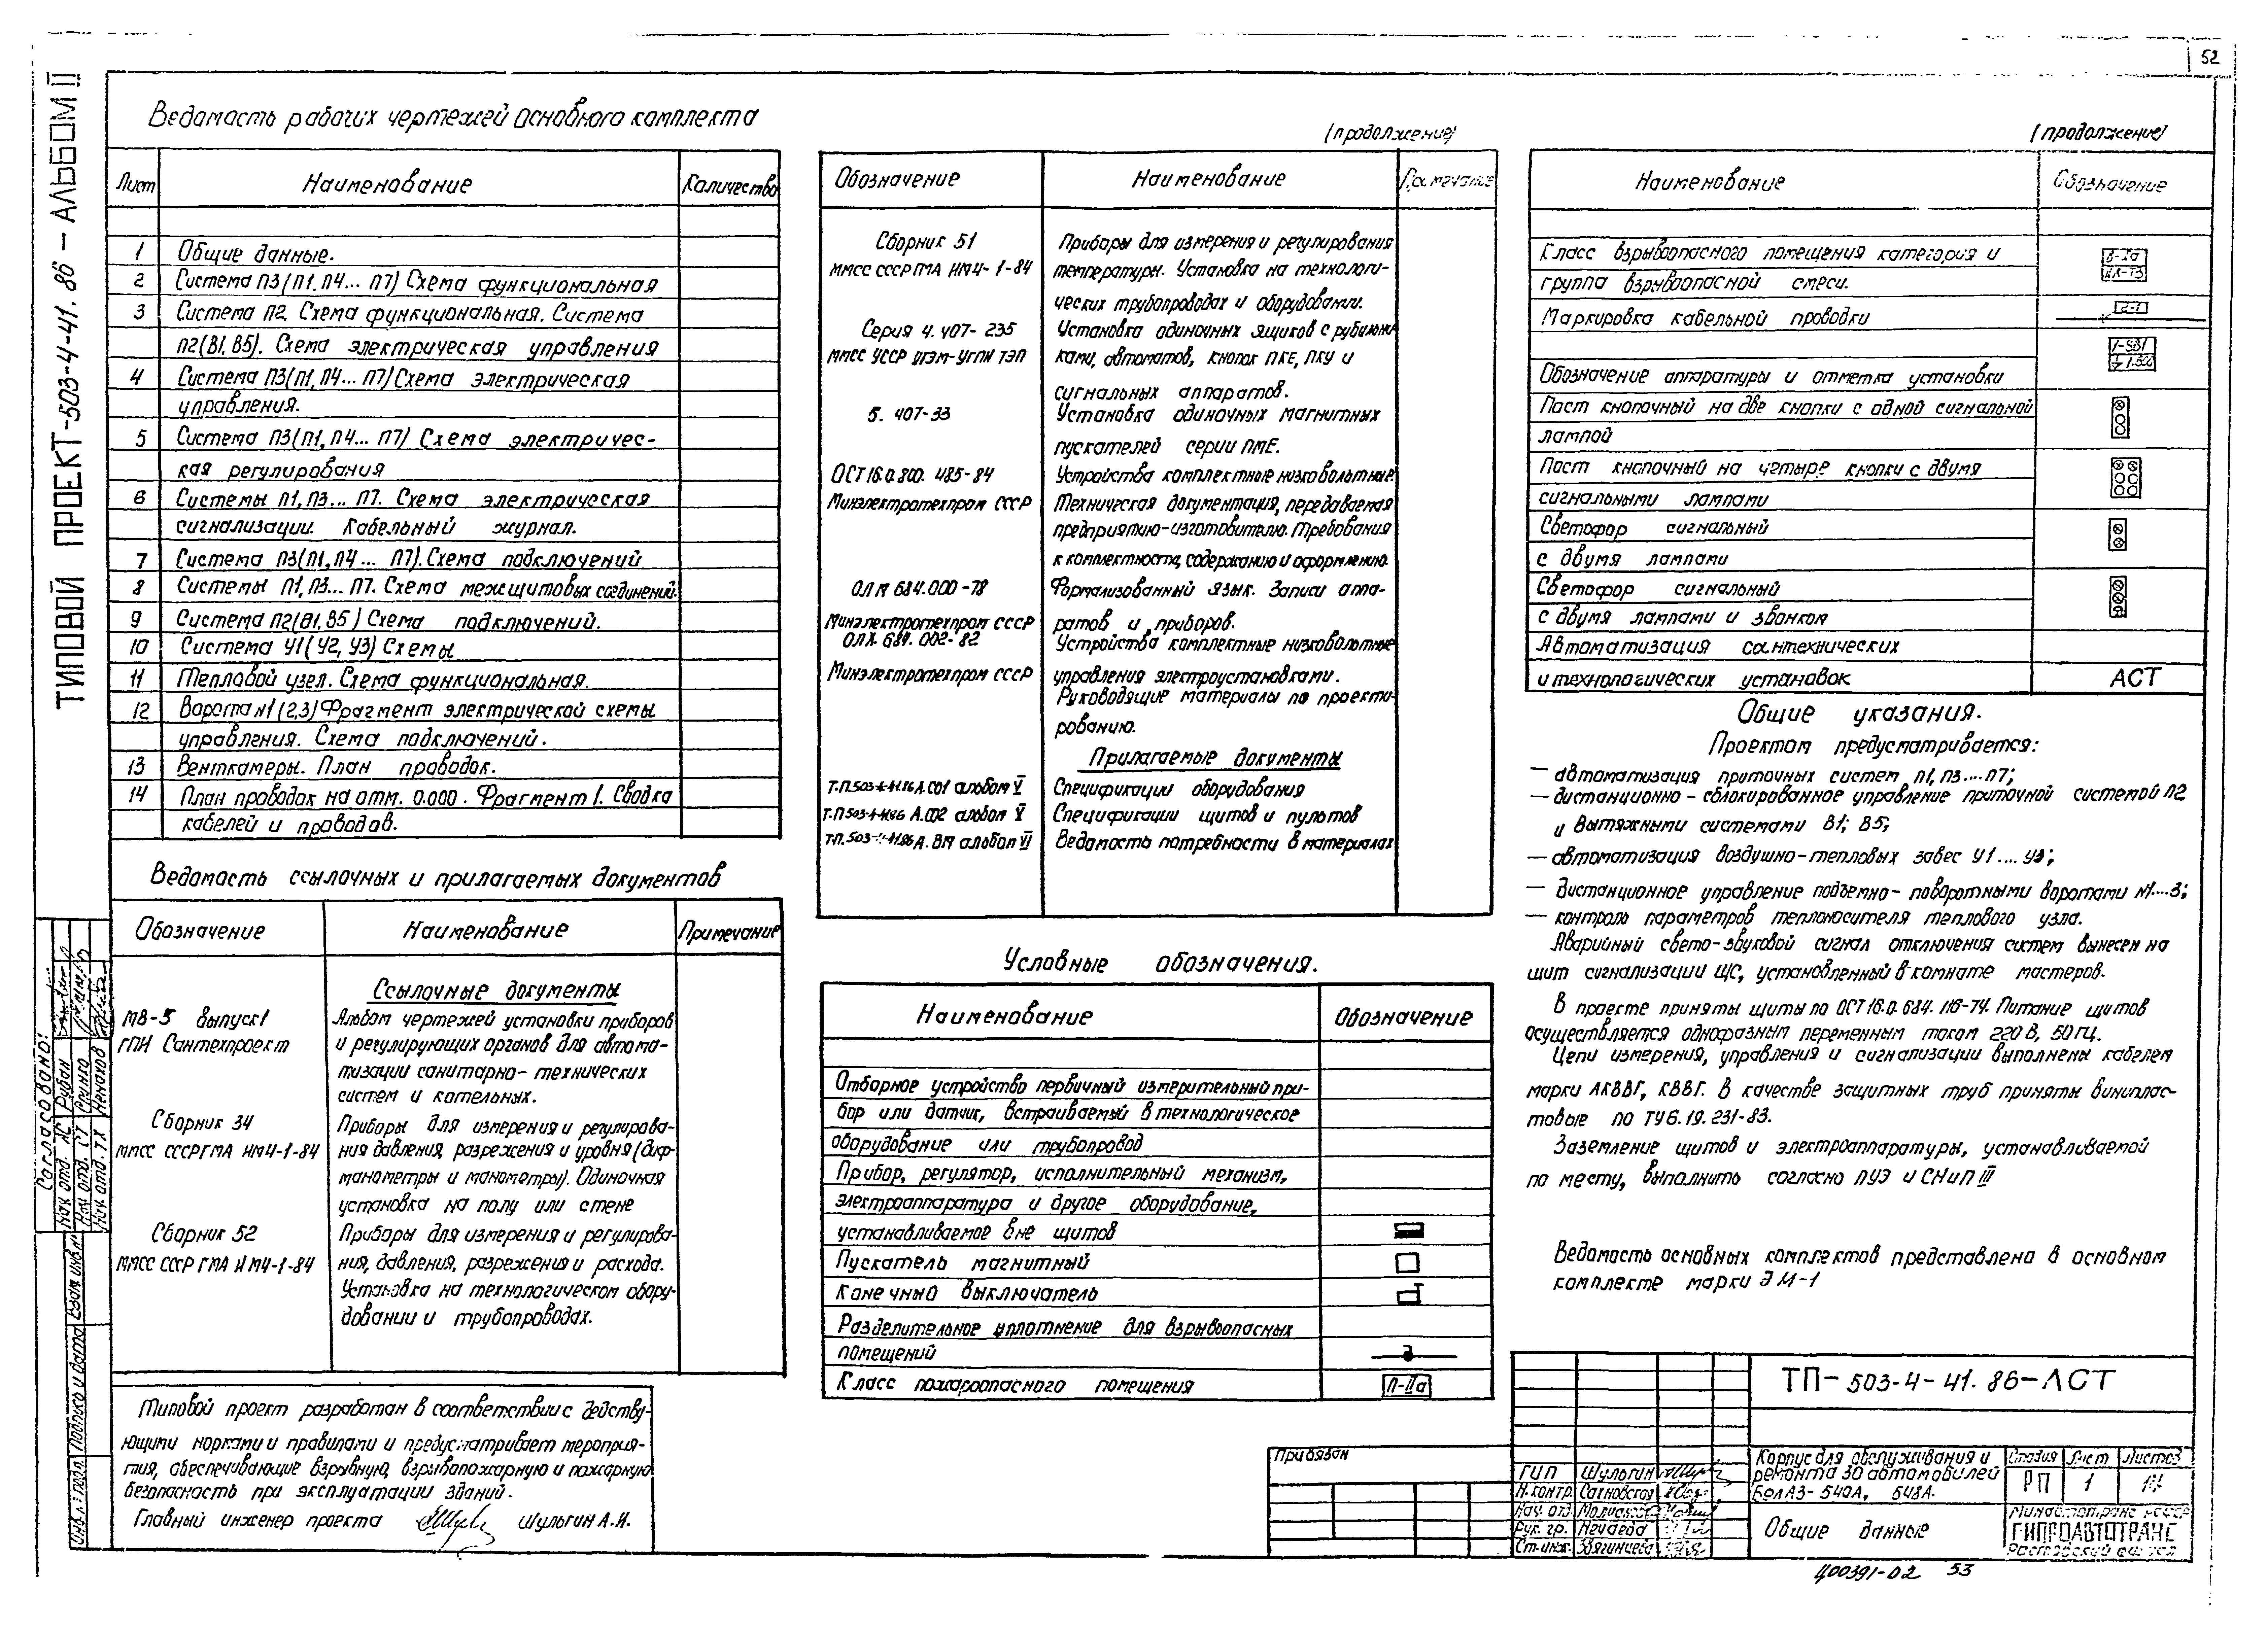 52
ТИПОВОЙ ПРОЕКТ-503-4-41.86 - АЛЬБОМ II
Ведомость рабочих чертежей основного комплекта
Лист Наименование Количество
1 Общие данные.
2 Система П3 (П1, П4... П7) Схема функциональная
3 Система П2. Схема функциональная. Система
П2(В1, В5). Схема электрическая управления
4 Система П3(П1, П4... П7) Схема электрическая
управления.
5 Система П3(П1, П4... П7) Схема электричес-
кая регулирования
6 Системы П1, П3... П7. Схема электрическая
сигнализации. Кабельный журнал.
7 Система П3(П1, П4... П7). Схема подключений
8 Системы П1, П3... П7. Схема межщитовых соединений.
9 Система П2(В1, В5) Схема подключений.
10 Система У1(У2, У3) Схемы
11 Тепловой узел. Схема функциональная.
12 Ворота №1 (2,3) Фрагмент электрической схемы
управления. Схема подключений.
13 Венткамеры. План проводок.
14 План проводок на отм. 0.000. Фрагмент 1. Сводка
кабелей и проводов.
Ведомость ссылочных и прилагаемых документов
Обозначение Наименование Примечание
Ссылочные документы
МВ-5 выпуск 1 Альбом чертежей установки приборов
ГПИ Сантехпроект и регулирующих органов для автома-
тизации санитарно-технических
систем и котельных.
Сборник 34 Приборы для измерения и регулирова-
ММСС СССР ГМА НМ4-1-84 ния давления, разрежения и уровня (диф-
манометры и манометры). Одиночная
установка на полу или стене
Сборник 52 Приборы для измерения и регулирова-
ММСС СССР ГМА НМ4-1-84 ния, давления, разрежения и расхода.
Установка на технологическом обору-
довании и трубопроводах.
Типовой проект разработан в соответствии с действу-
ющими нормами и правилами и предусматривает мероприя-
тия, обеспечивающие взрывную, взрывопожарную и пожарную
безопасность при эксплуатации зданий.
Главный инженер проекта Шульгин А.И.
(продолжение)
Обозначение Наименование Примечание
Сборник 51 Приборы для измерения и регулирования
ММСС СССР ГМА НМ4-1-84 температуры. Установка на технологи-
ческих трубопроводах и оборудовании.
Серия 4.407-235 Установка одиночных ящиков с рубильни-
ММСС УССР УГЭМ-УГПИ ТЭП ками, автоматов, кнопок ПКЕ, ПКУ и
сигнальных аппаратов.
5.407-33 Установка одиночных магнитных
пускателей серии ПМЕ.
ОСТ 16.0.800.485-84 Устройства комплектные низковольтные.
Минэлектротехпром СССР Техническая документация, передаваемая
предприятию-изготовителю. Требования
к комплектности, содержанию и оформлению.
ОЛМ 684.000-78 Формализованный язык. Записи аппа-
Минэлектротехпром СССР ратов и приборов.
ОЛХ.684.002-82 Устройства комплектные низковольтные
Минэлектротехпром СССР управления электроустановками.
Руководящие материалы по проекти-
рованию.
Прилагаемые документы
Т.П.503-4-41.86 А.СО1 альбом V Спецификации оборудования
Т.П.503-4-41.86 А.СО2 альбом V Спецификации щитов и пультов
Т.П.503-4-41.86 А.ВМ альбом VI Ведомость потребности в материалах
Условные обозначения.
Наименование Обозначение
Отборное устройство первичный измерительный при-
бор или датчик, встраиваемый в технологическое
оборудование или трубопровод
Прибор, регулятор, исполнительный механизм,
электроаппаратура и другое оборудование,
устанавливаемое вне щитов
Пускатель магнитный
Конечный выключатель
Разделительное уплотнение для взрывоопасных
помещений
Класс пожароопасного помещения П-IIа
(продолжение)
Наименование Обозначение
Класс взрывоопасного помещения категория и В-Iа
группа взрывоопасной смеси. IIА-Т3
Маркировка кабельной проводки 2-1
Обозначение аппаратуры и отметка установки
Пост кнопочный на две кнопки с одной сигнальной
лампой
Пост кнопочный на четыре кнопки с двумя
сигнальными лампами
Светофор сигнальный
с двумя лампами
Светофор сигнальный
с двумя лампами и звонком
Автоматизация сантехнических
и технологических установок АСТ
Общие указания.
Проектом предусматривается:
— автоматизация приточных систем П1, П3...П7;
— дистанционно-сблокированное управление приточной системой П2
и вытяжными системами В1; В5;
— автоматизация воздушно-тепловых завес У1...У3;
— дистанционное управление подъемно-поворотными воротами №1...3;
— контроль параметров теплоносителя теплового узла.
Аварийный свето-звуковой сигнал отключения систем вынесен на
щит сигнализации ЩС, установленный в комнате мастеров.
В проекте приняты щиты по ОСТ 16.0.684.116-74. Питание щитов
осуществляется однофазным переменным током 220 В, 50 гц.
Цепи измерения, управления и сигнализации выполнены кабелем
марки АКВВГ, КВВГ. В качестве защитных труб приняты винипла-
стовые по ТУ6.19.231-83.
Заземление щитов и электроаппаратуры, устанавливаемой
по месту, выполнить согласно ПУЭ и СНиП III
Ведомость основных комплектов представлена в основном
комплекте марки ЭМ-1
Согласовано:
Нач. отд. АС Рубан
Нач. отд. СТ
Нач. отд. ТХ Менахов
Взам. инв. №
Подпись и дата
Инв. № подл.
Привязан
ТП-503-4-41.86-АСТ
ГИП Шульгин
Н.контр. Сахновская
Нач. отд.
Рук. гр. Нечаева
Ст. инж. Звягинцева
Корпус для обслуживания и
ремонта 30 автомобилей
БелАЗ-540А, 548А.
Стадия Лист Листов
РП 1 14
Общие данные
Минавтотранс РСФСР
ГИПРОАВТОТРАНС
Ростовский филиал
Ц00391-02 53